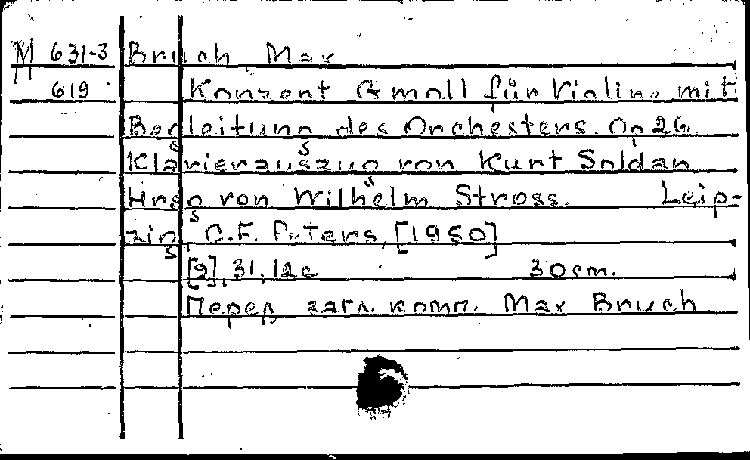 М 631-3 Bruch Max
619 Konzert G moll für Violine mit
Begleitung des Orchesters. Op 26.
Klavierauszug von Kurt Soldan
Hrsg von Wilhelm Stross. Leip-
zig, C.F. Peters, [1950]
[2], 31, 12 c 30 cm.
Перед загл. комп. Max Bruch